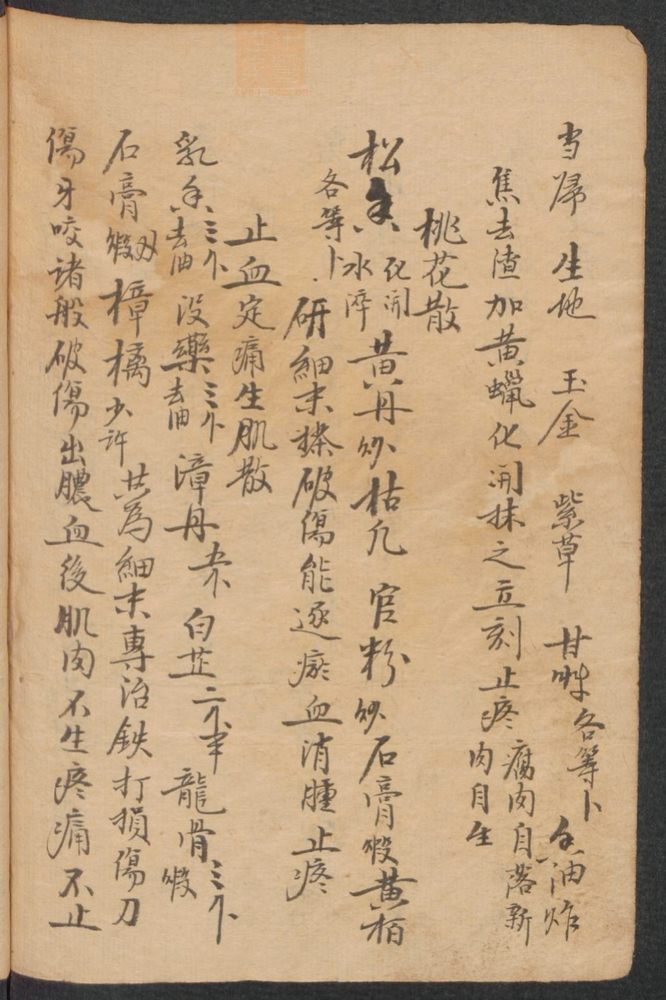 当归 生地 玉金 紫草 甘草各等卜 香油炸
焦去渣加黄蠟化開抹之立刻止疼腐肉自落新肉自生
桃花散
松香化開水淬 黄丹炒 枯凡 官粉炒 石膏煅 黄柏
各等卜 研細末搽破傷能逐瘀血消腫止疼
止血定痛生肌散
乳香去油三个 没藥去油三个 漳丹 白芷二个半 龍骨煅三个
石膏煅 樟腦少許 共為細末專治鉄打損傷刀
傷牙咬諸般破傷出膿血後肌肉不生疼痛不止